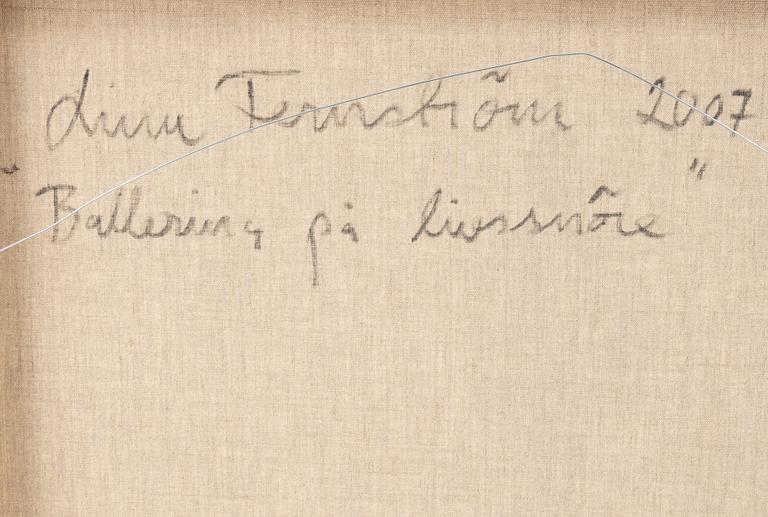 Linn Fernström 2007
"Ballerina på livssnöre"